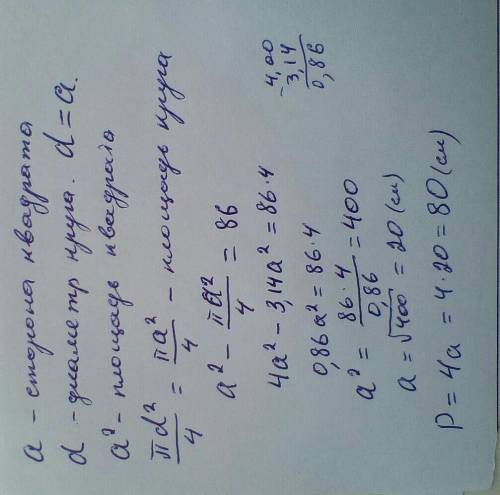 a - сторона квадрата
d - диаметр круга. d = a.
a² - площадь квадрата
πd²/4 = πa²/4 - площадь круга
a² - πa²/4 = 86
4a² - 3,14a² = 86·4
0,86a² = 86·4
a² = 86·4/0,86 = 400
a = √400 = 20 (см)
P = 4a = 4·20 = 80 (см)
- 4,00
3,14
0,86